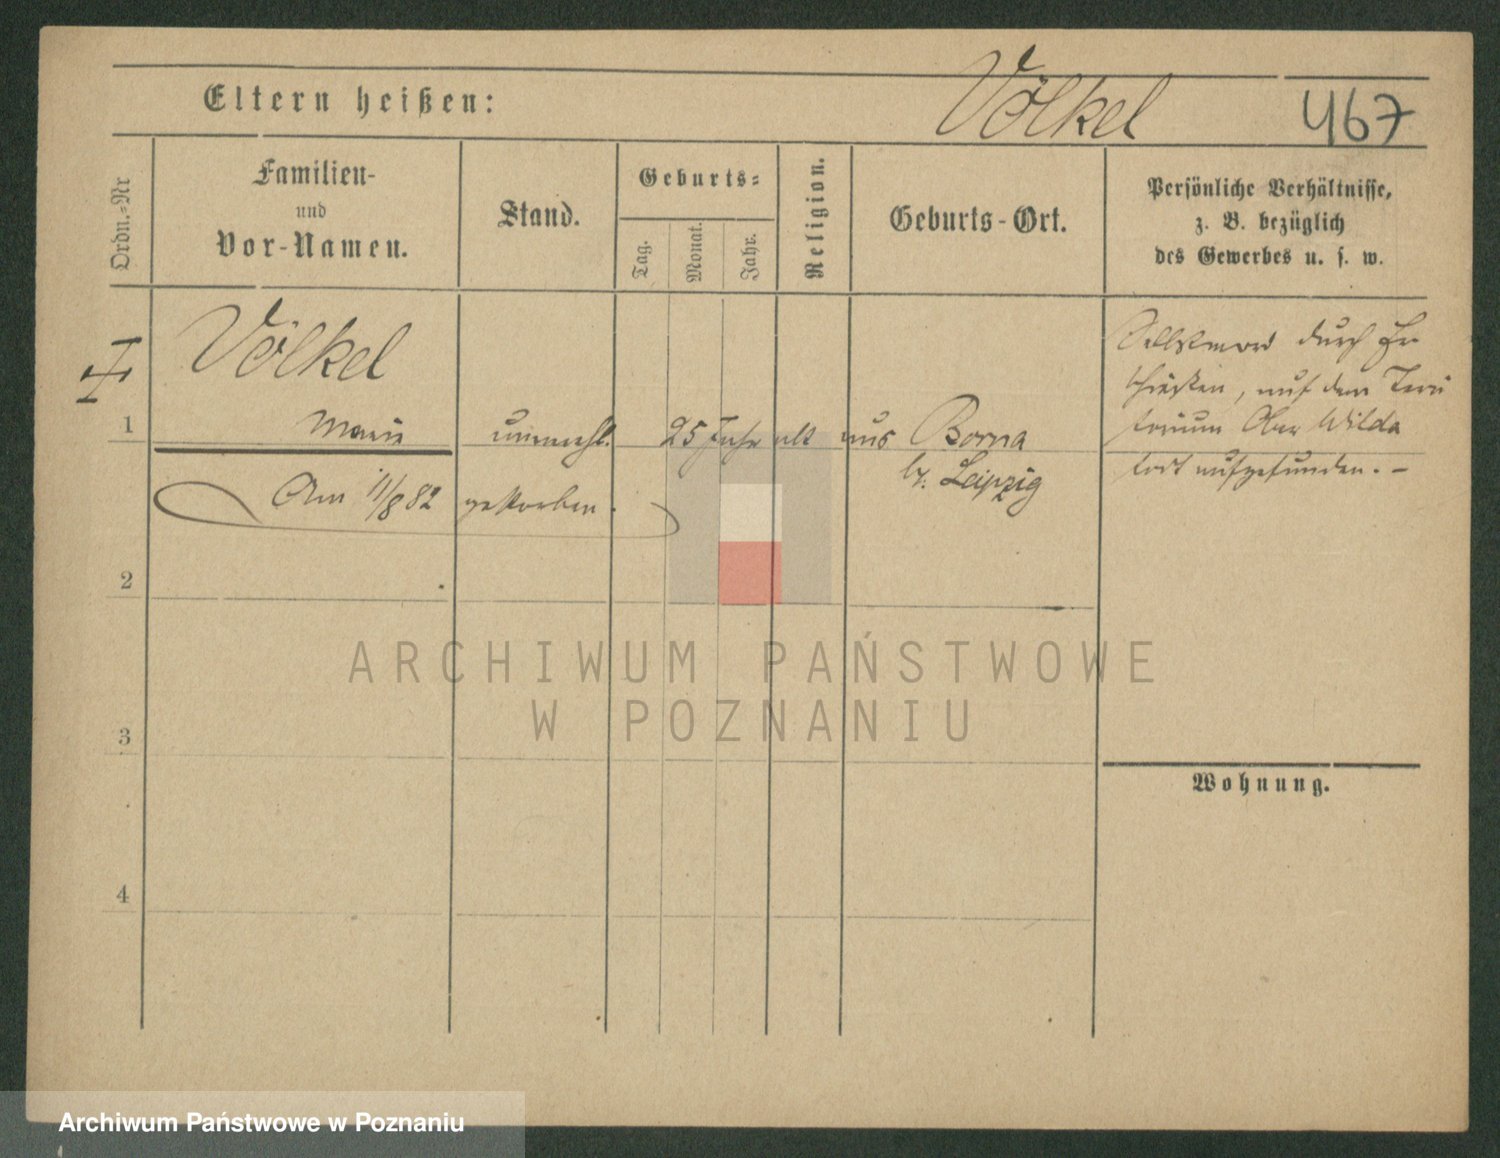 Eltern heißen:
Völkel
467
Ordn.=Nr
Familien-
und
Vor-Namen.
Stand.
Geburts=
Tag.
Monat.
Jahr.
Religion.
Geburts-Ort.
Persönliche Verhältnisse,
z. B. bezüglich
des Gewerbes u. s. w.
Völkel
1
Marie
unverehl.
25 Jahr alt aus Borna
b/. Leipzig
Am 11/8 82 gestorben.
Selbstmord durch Er
schießen, auf dem Terri
torium Ober Wilda
todt aufgefunden. –
2
3
4
Wohnung.
ARCHIWUM PAŃSTWOWE
W POZNANIU
Archiwum Państwowe w Poznaniu